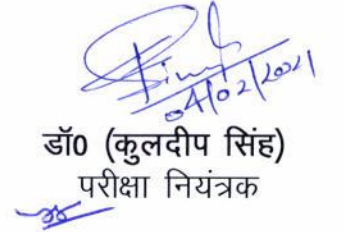 04/02/2021
डॉ0 (कुलदीप सिंह)
परीक्षा नियंत्रक